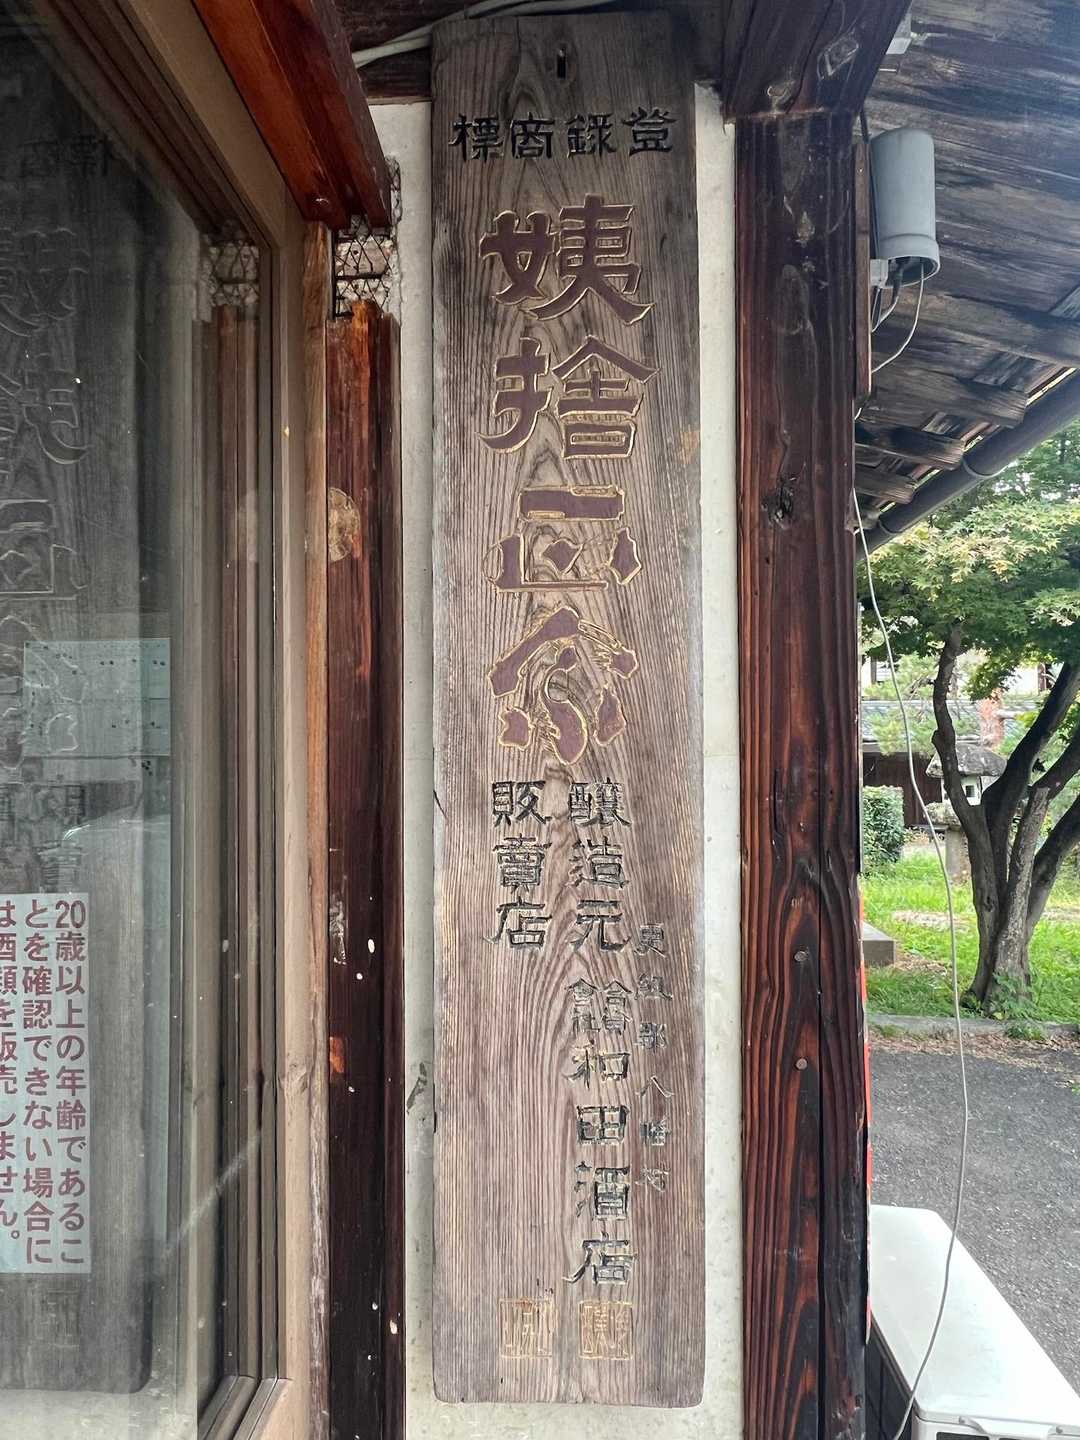 登録商標
姨捨正宗
更級郡 八幡村
醸造元 䑓和田酒店
販賣店
20歳以上の年齢であるこ
とを確認できない場合に
は酒類を販売しません。